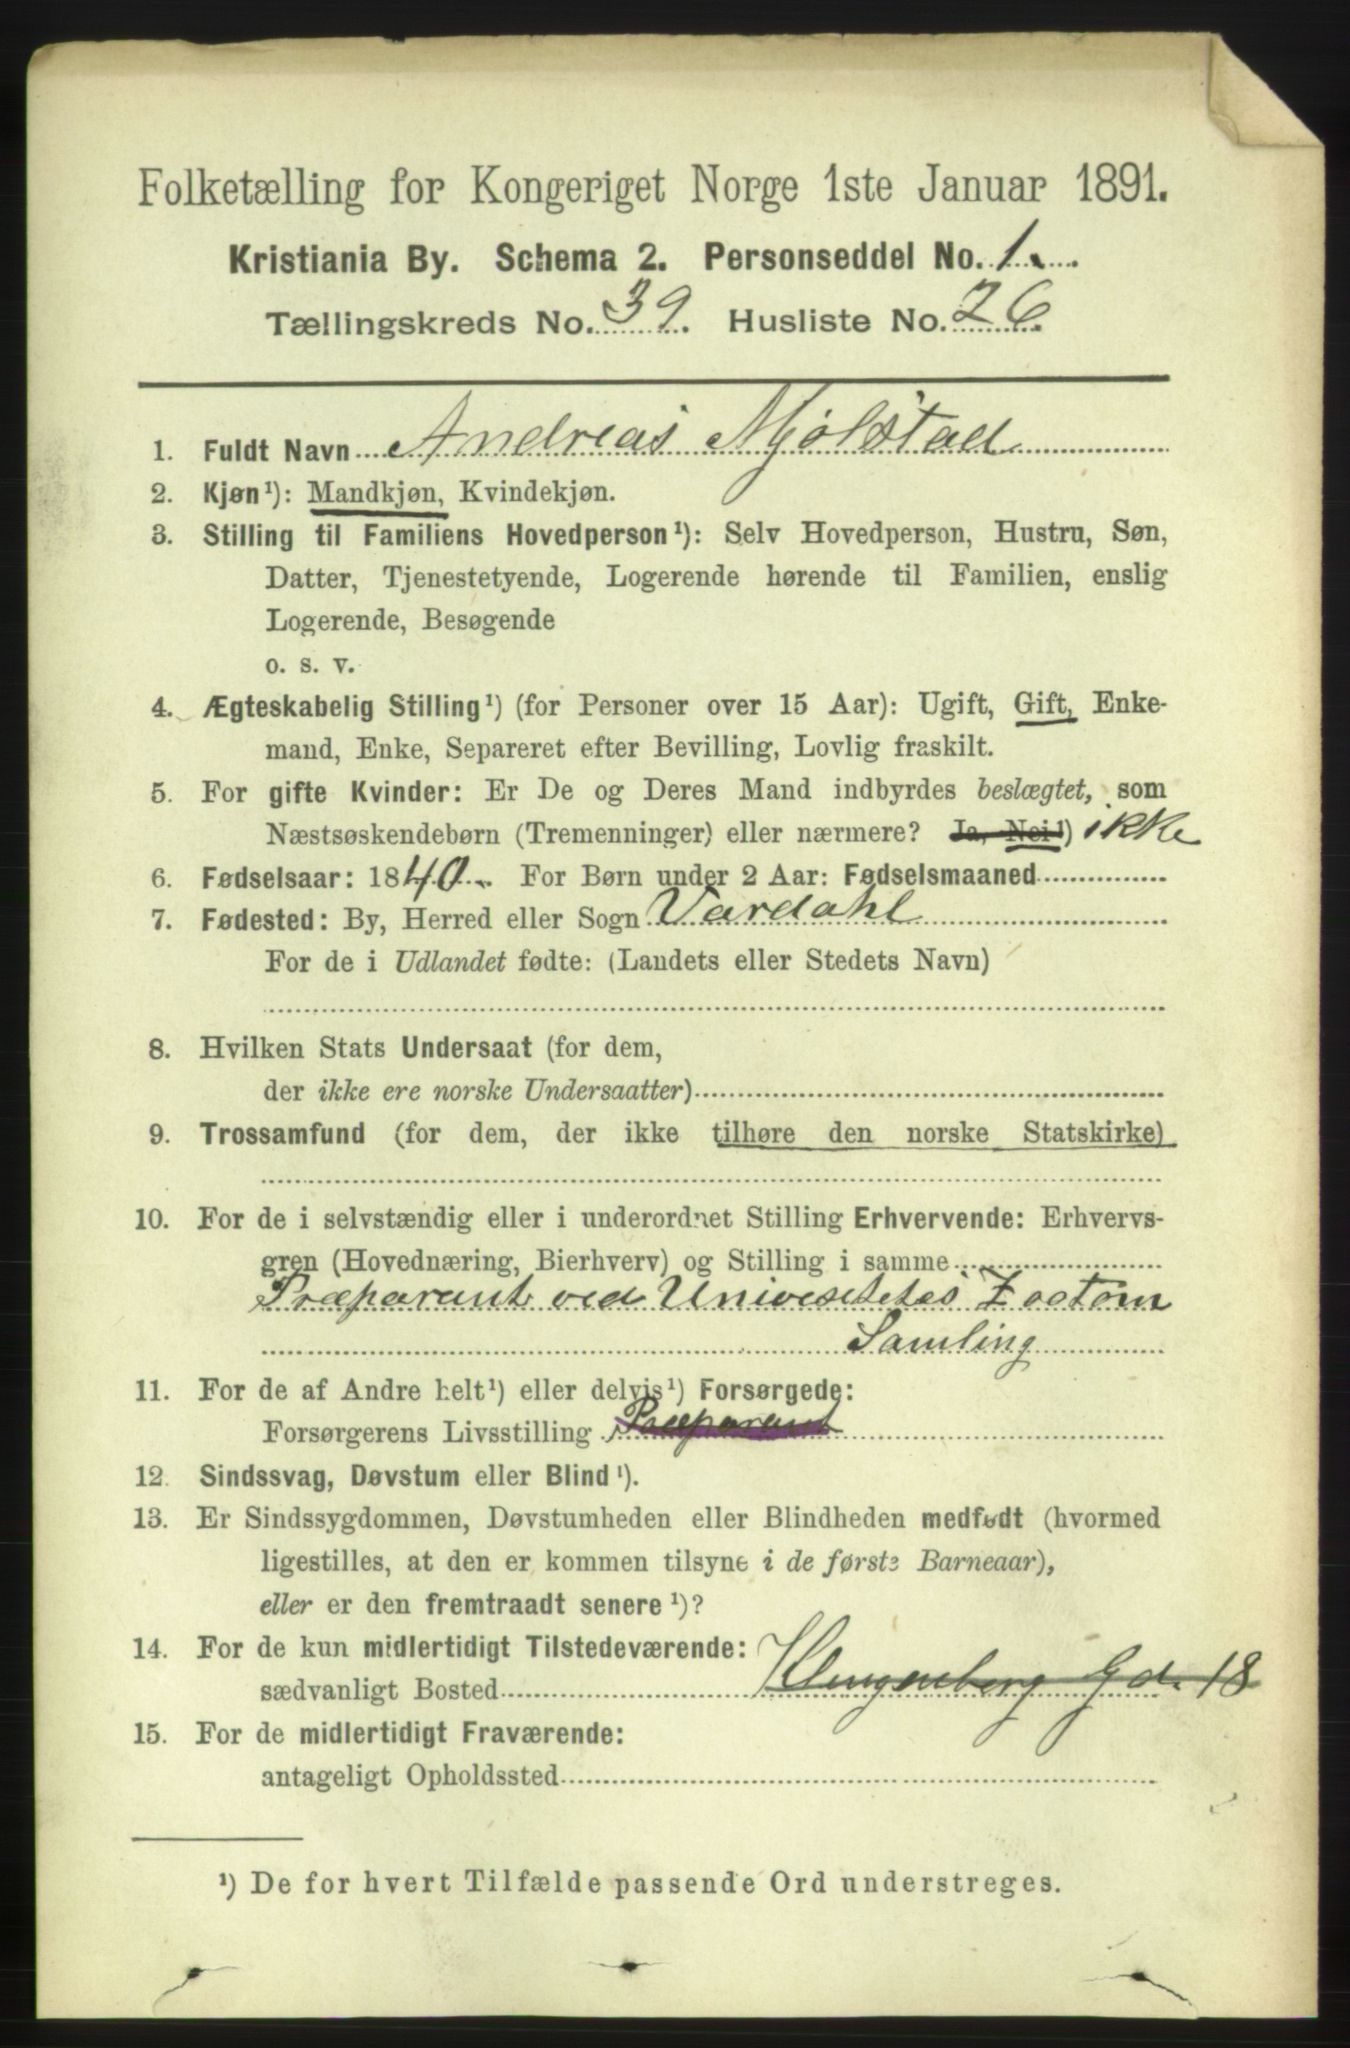 Folketælling for Kongeriget Norge 1ste Januar 1891.
Kristiania By. Schema 2. Personseddel No. 1.
Tællingskreds No. 39. Husliste No. 26.
1. Fuldt Navn Andreas Mjölstad
2. Kjøn¹): Mandkjøn, Kvindekjøn.
3. Stilling til Familiens Hovedperson¹): Selv Hovedperson, Hustru, Søn,
Datter, Tjenestetyende, Logerende hørende til Familien, enslig
Logerende, Besøgende
o. s. v.
4. Ægteskabelig Stilling¹) (for Personer over 15 Aar): Ugift, Gift, Enke-
mand, Enke, Separeret efter Bevilling, Lovlig fraskilt.
5. For gifte Kvinder: Er De og Deres Mand indbyrdes beslægtet, som
Næstsøskendebørn (Tremenninger) eller nærmere? Ja, Nei¹) ikke
6. Fødselsaar: 1840. For Børn under 2 Aar: Fødselsmaaned
7. Fødested: By, Herred eller Sogn Vardahl
For de i Udlandet fødte: (Landets eller Stedets Navn)
8. Hvilken Stats Undersaat (for dem,
der ikke ere norske Undersaatter)
9. Trossamfund (for dem, der ikke tilhøre den norske Statskirke)
10. For de i selvstændig eller i underordnet Stilling Erhvervende: Erhvervs-
gren (Hovednæring, Bierhverv) og Stilling i samme
Præparant ved Univesitetes Zootom
Samling
11. For de af Andre helt¹) eller delvis¹) Forsørgede:
Forsørgerens Livsstilling Præparant
12. Sindssvag, Døvstum eller Blind¹).
13. Er Sindssygdommen, Døvstumheden eller Blindheden medfødt (hvormed
ligestilles, at den er kommen tilsyne i de første Barneaar),
eller er den fremtraadt senere¹)?
14. For de kun midlertidigt Tilstedeværende:
sædvanligt Bosted Klingenberg Gd. 18
15. For de midlertidigt Fraværende:
antageligt Opholdssted
¹) De for hvert Tilfælde passende Ord understreges.